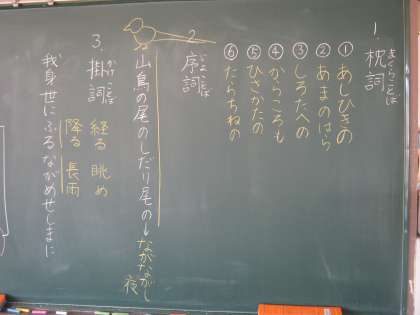 1. 枕詞
まくらことば
① あしひきの
② あまのはら
③ しろたへの
④ からころも
⑤ ひさかたの
⑥ たらちねの
2. 序詞
じょことば
山鳥の尾のしだり尾の→ながながし夜
3. 掛詞
かけことば
経る 眺め
降る 長雨
我身世にふるながめせしまに